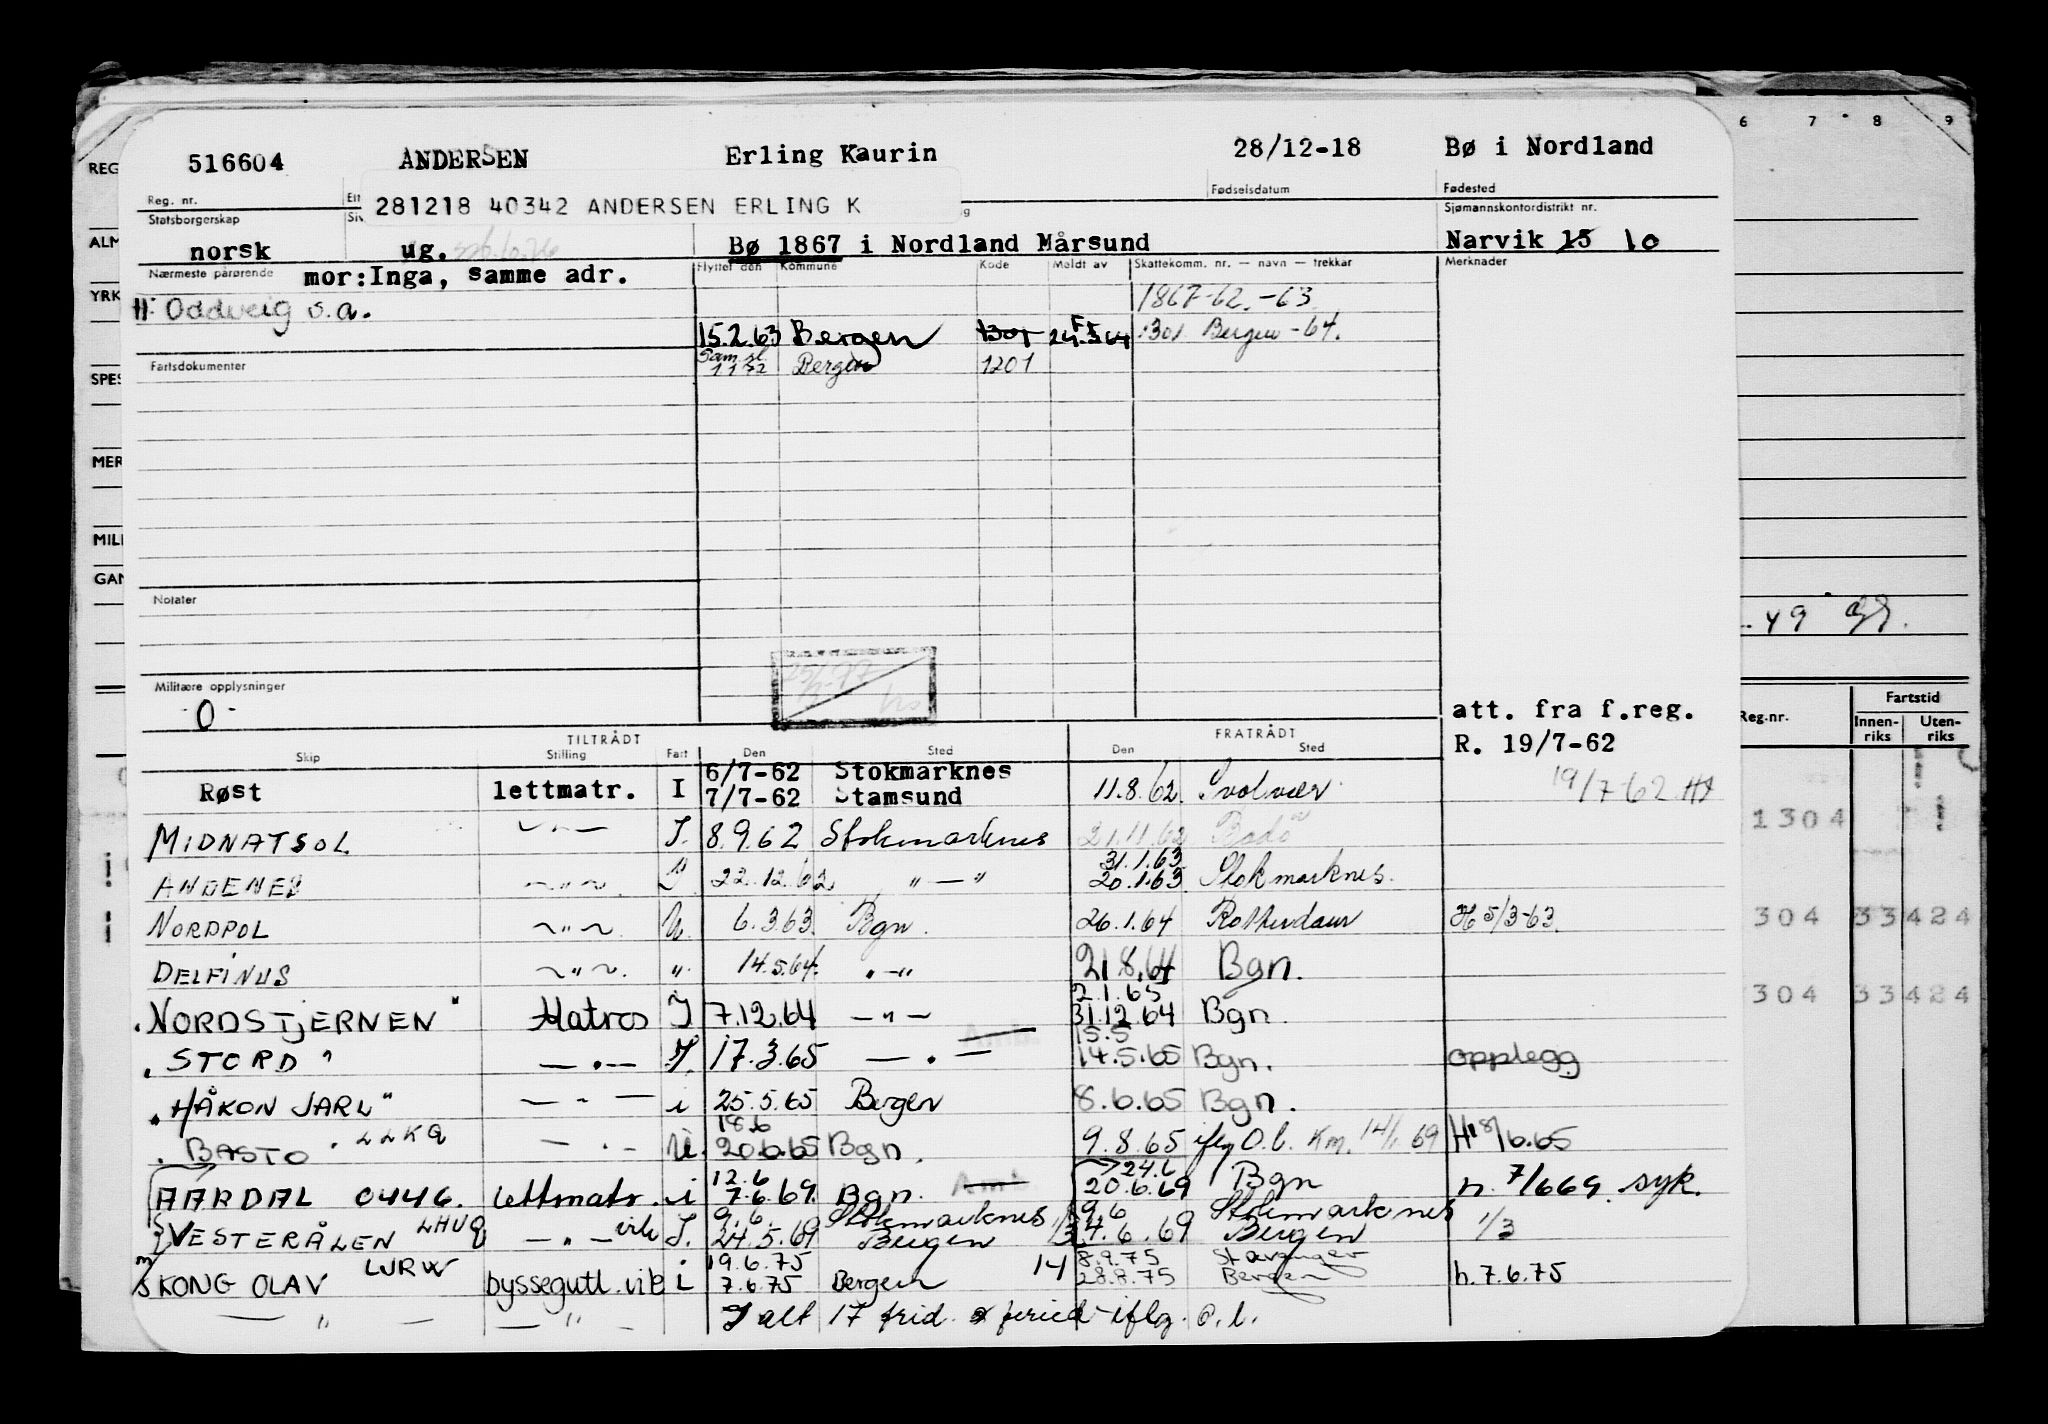 516604 ANDERSEN Erling Kaurin 28/12-18 Bø i Nordland
Reg. nr. Fødselsdatum Fødested
281218 40342 ANDERSEN ERLING K
Statsborgerskap Sjømannskontordistrikt nr.
norsk ug. Bø 1867 i Nordland Mårsund Narvik 15 10
Nærmeste pårørende Flyttet den Kommune Kode Meldt av Skattekomm. nr. — navn — trekkår Merknader
mor:Inga, samme adr.
1867-62.-63
H: Oddveig s.a.
15.2.63 Bergen 1301 24.3.64 1301 Bergen -64.
Fartsdokumenter
1 1 72 Bergen 1201
Notater
Militære opplysninger
-0-
att. fra f.reg.
R. 19/7-62
19/7-62
TILTRÅDT FRATRÅDT
Skip Stilling Fart Den Sted Den Sted
Røst lettmatr. I 6/7-62 Stokmarknes
7/7-62 Stamsund 11.8.62 Svolvær
MIDNATSOL —"— I. 8.9.62 Stokmarknes 21.11.62 Bodø
31.1.63
ANDENES —"— I 22.12.62 "—" 20.1.63 Stokmarknes.
NORDPOL —"— U. 6.3.63 Bgn. 26.1.64 Rotterdam H 5/3-63.
DELFINUS —"— ". 14.5.64. "—" 21.8.64 Bgn.
2.1.65
"NORDSTJERNEN" Matros I 7.12.64 —"— 31.12.64 Bgn
15.5
"STORD" —"— I. 17.3.65 —"— 14.5.65 Bgn. opplegg
"HÅKON JARL" —"— i 25.5.65 Bergen 8.6.65 Bgn.
18.6
"BASTO" LLKQ —"— U. 20.6.65 Bgn. 9.8.65 iflg O.l. Km. 14/1 69 H 18/6.65
12.6 24.6
AARDAL 0446. lettmatr. i 7.6.69. Bgn. 20.6.69 Bgn h. 7/669. syk.
9.6 Stokmarknes 9.6 Stokmarknes
VESTERÅLEN LHUQ —"— vik I. 24.5.69 Bergen 1/3 4.6.69 Bergen 1/3
19.6.75 14 8.9.75 Stavanger
KONG OLAV LJRW byssegutt.vik i 7.6.75 Bergen 28.8.75 Bergen h.7.6.75
—"— —"— I alt 17 frid. feried iflg. o.l.
REG
ALM
YRK
SPES
MER
MILI
GAN
6 7 8 9
49
Reg.nr. Fartstid
Innen-riks Uten-riks
1304
304 33424
304 33424